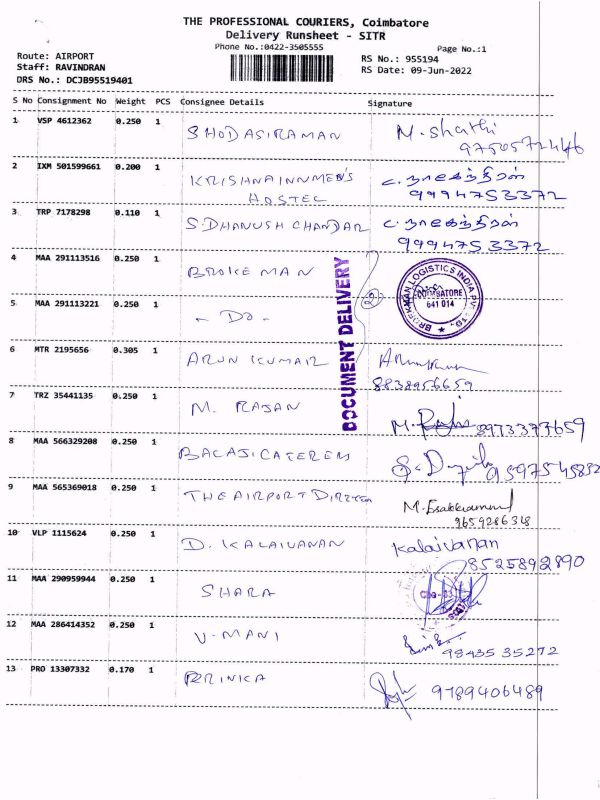 THE PROFESSIONAL COURIERS, Coimbatore
Delivery Runsheet - SITR
Phone No.:0422-3505555
Page No.:1
Route: AIRPORT
Staff: RAVINDRAN
DRS No.: DCJB95519401
RS No.: 955194
RS Date: 09-Jun-2022
S No Consignment No Weight PCS Consignee Details Signature
1 VSP 4612362 0.250 1 SHODASIRAMAN M. Shathi
2 IXM 501599661 0.200 1 KRISHNA INNMEN'S HOSTEL c. நாகேந்திரன்
9994753372
3 TRP 7178298 0.110 1 S DHANUSH CHANDAR c. நாகேந்திரன்
9994753372
4 MAA 291113516 0.250 1 BROKE MAN
5 MAA 291113221 0.250 1 - DO -
2
DOCUMENT DELIVERY
BROEKMAN LOGISTICS INDIA PVT. LTD.
COIMBATORE
641 014
6 MTR 2195656 0.305 1 ARUN KUMAR
8838956659
7 TRZ 35441135 0.250 1 M. RAJAN 8973377659
8 MAA 566329208 0.250 1 BALAJI CATERERS 9597545832
9 MAA 565369018 0.250 1 THE AIRPORT M.
9659286328
10 VLP 1115624 0.250 1 D. KALAIVANAN Kalaivanan
8525892890
11 MAA 290959944 0.250 1 SHARA
12 MAA 286414352 0.250 1 V-MANI
98435 35272
13 PRO 13307332 0.170 1 9789406489